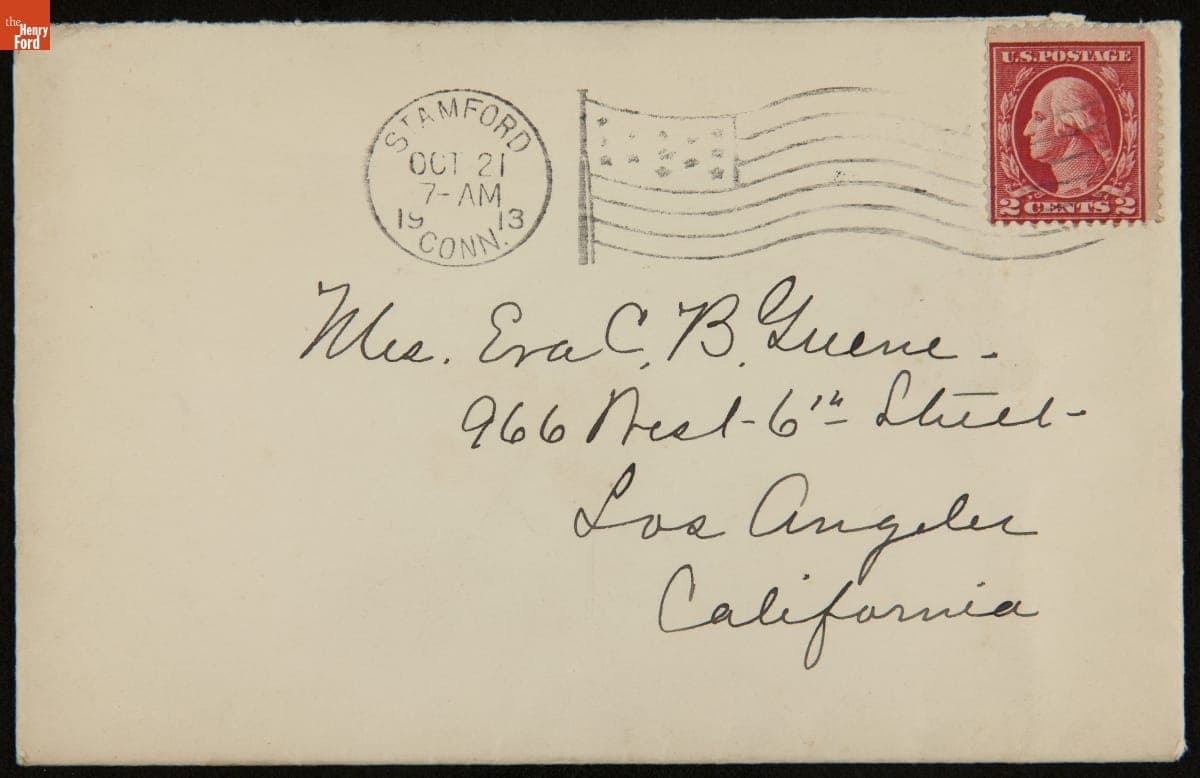 the
Henry
Ford
U.S. POSTAGE
2 CENTS 2
STAMFORD
OCT 21
7-AM
19 13
CONN.
Mrs. Eva C. B. Greene.
966 West-6th Street-
Los Angeles
California